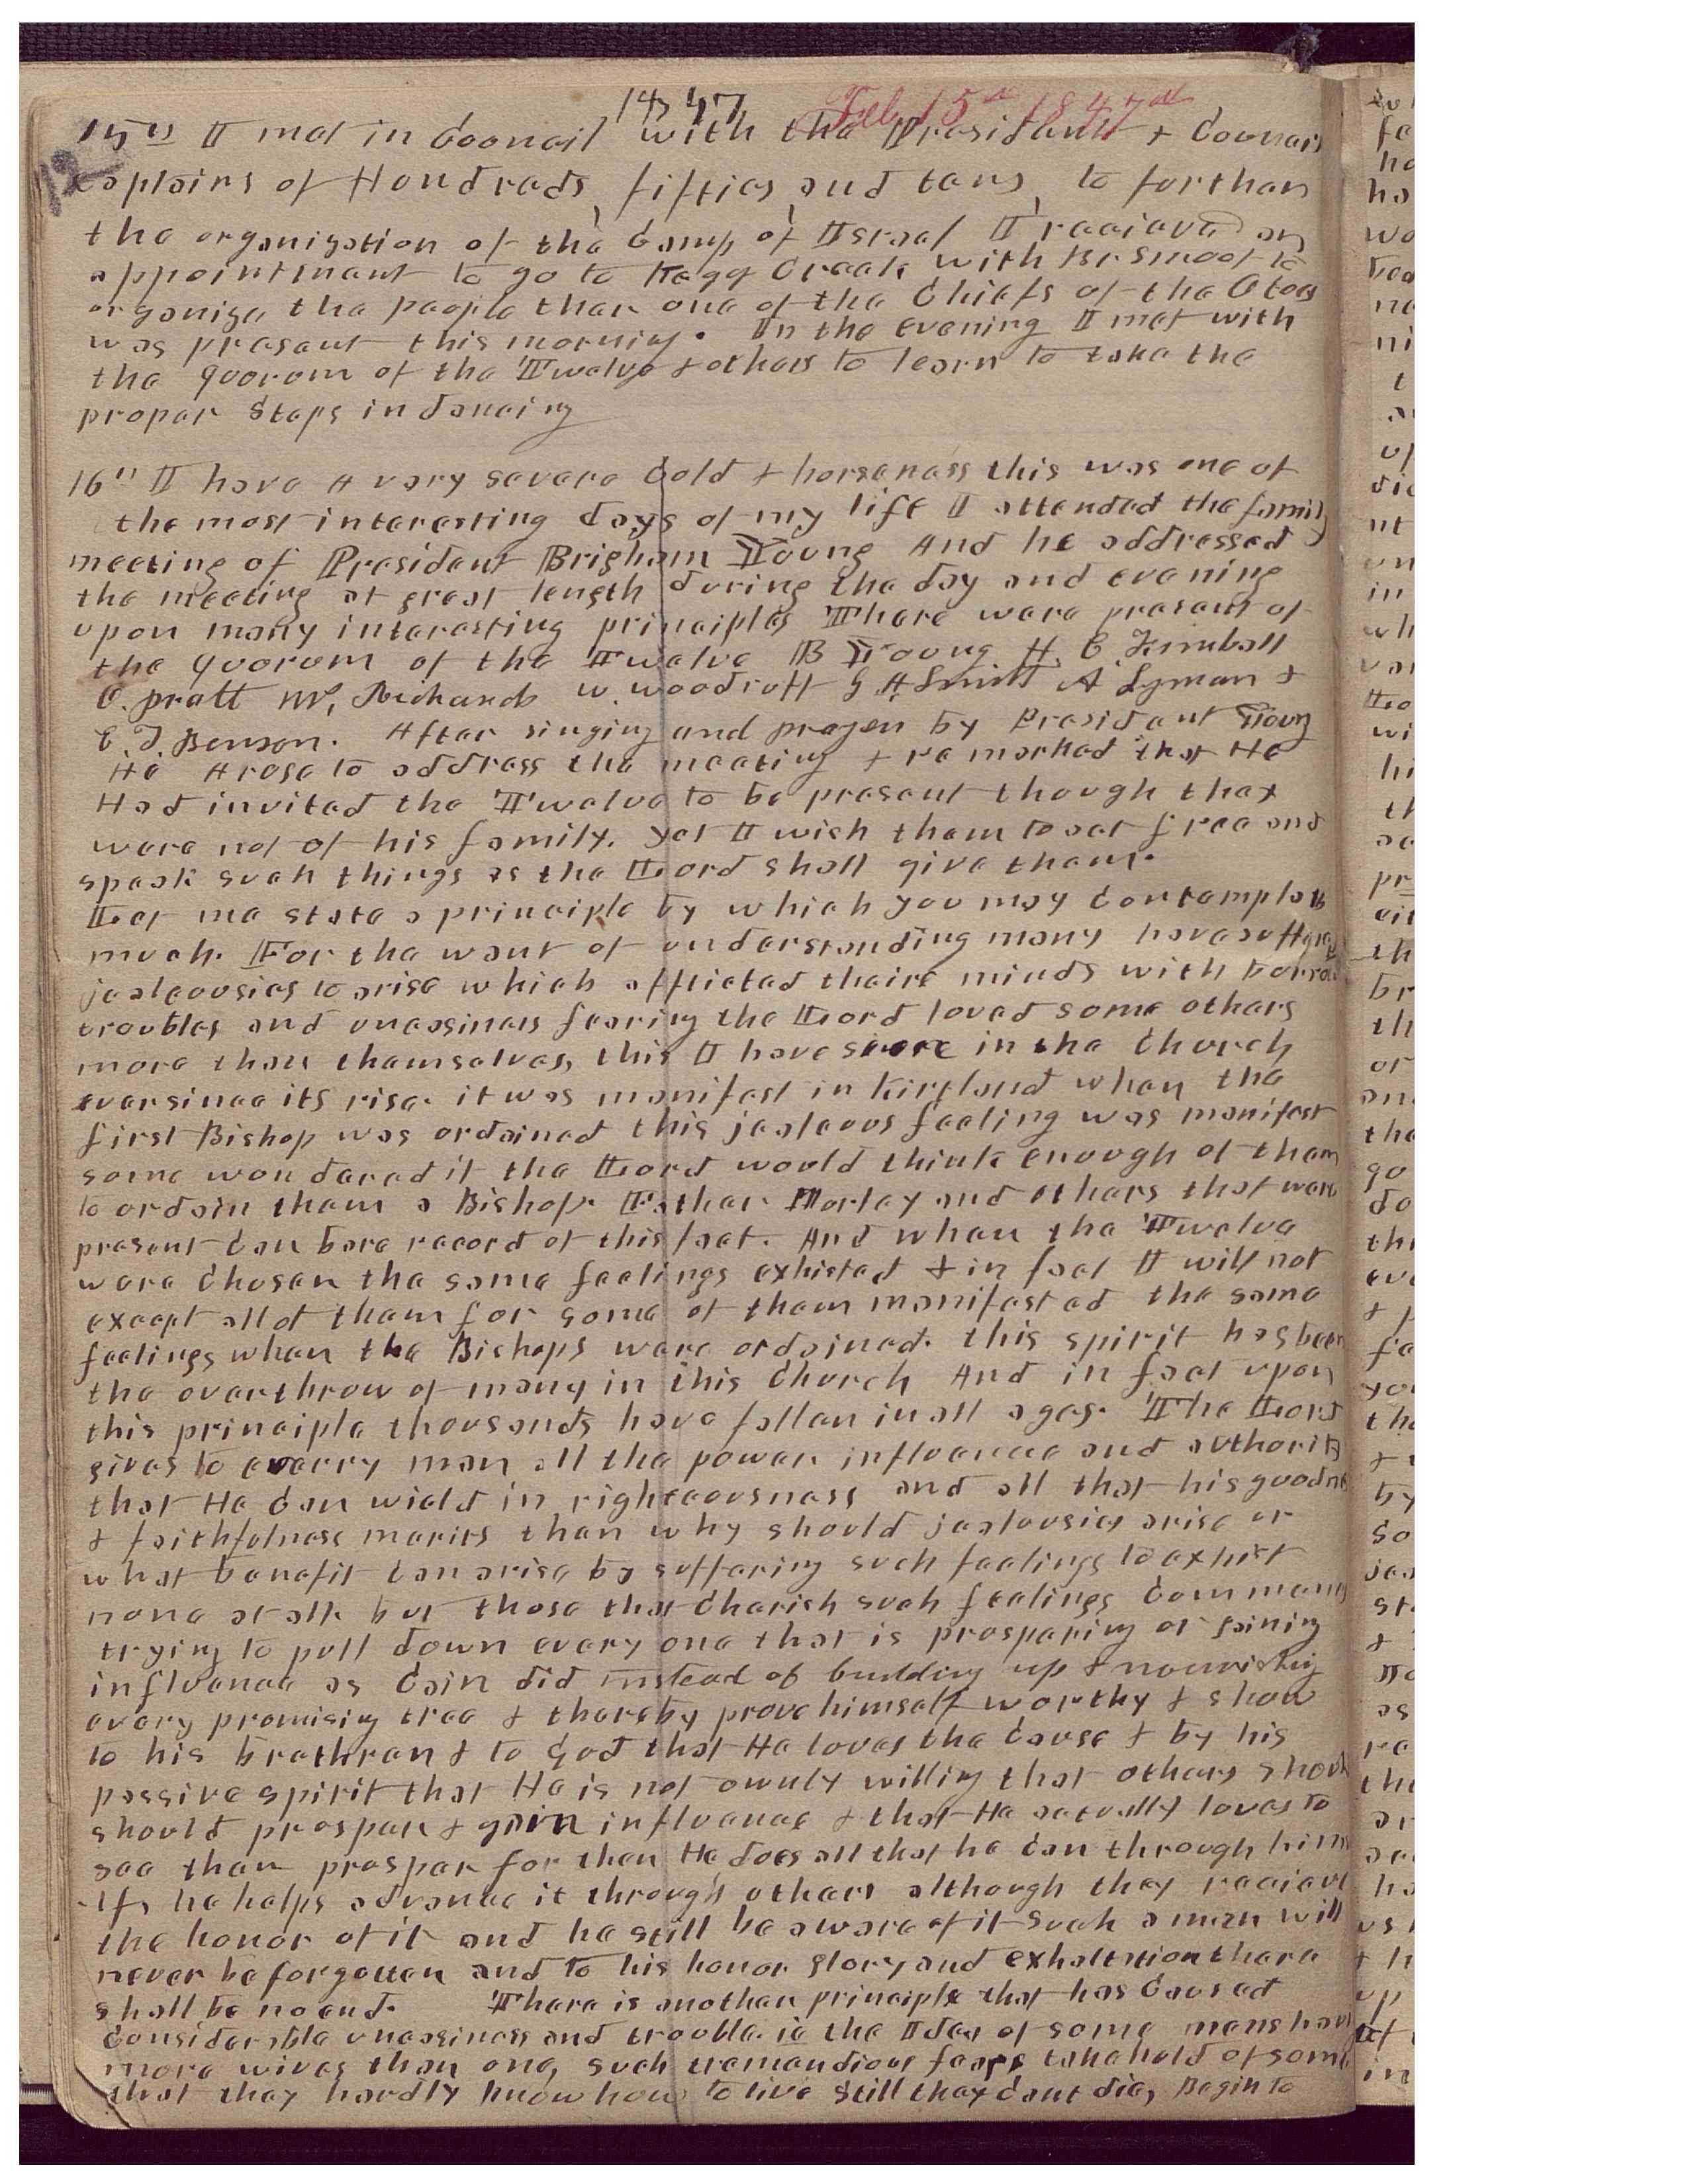 1847 Feb 15th 1847
15th I met in Council with the President & Council
Captains of Hundreds, fifties, and tens, to forthar
the organization of the Camp of Israel I received an
appointment to go to Kegg Creek with Br Smoot to
organize the people ther one of the Chiefs of the Otoes
was present this morning. In the evening I met with
the quorum of the Twelve & others to learn to take the
propar Steps in dancing
16th I have A very severe Cold & horseness this was one of
the most interesting days of my life I attended the family
meeting of President Brigham Young And he addressed
the meeting at great length during the day and evening
upon many interesting principles There were present of
the quorum of the Twelve B Young H. C Kimball
O. Pratt W. Richards W. Woodruff G A Smith A Lyman &
E. T. Benson. After singing and prayer by President Young
He Arose to address the meeting & remarked that He
Had invited the Twelve to be present though thay
were not of his family. yet I wish them to eat free and
speak such things as the Lord shall give them.
Let me state a principle by which you may Contemplate
much. For the want of understanding many have suffered
jealeousies to arise which afflicted theire minds with
troubles and uneasiness fearing the Lord loved some others
more than themselves, this I have seen in the Church
ever since its rise. it was manifest in Kirtland when the
first Bishop was ordained this jealeous feeling was manifest
some wondered if the Lord would think enough of them
to ordain them a Bishop. Father Morley and others that were
present Can bare record of this fact. And when the Twelve
were Chosen the same feelings exhisted & in fact I will not
except all of them for some of them manifested the same
feelings when the Bishops were ordained. this spirit has been
the overthrow of many in this Church And in fact upon
this principle thousands have fallen in all ages. The Lord
gives to everry man all the power influence and authority
that He Can wield in righteousness and all that his goodness
& faithfulness merits then why should jealousies arise or
what benefit Can arise by suffering such feelings to exhist
none at all. but those that Charish such feelings Commence
trying to pull down every one that is prospering or gaining
influence as Cain did instead of building up & nourishing
every promising tree & thereby prove himself worthy & show
to his brethren & to God that He loves the Cause & by his
passive spirit that He is not ownly willing that others should
should prosper & gain influence & that He actually loves to
see them prosper for then He does all that he Can through him
If he helps advance it through others although they receive
the honor of it and he still be aware of it such a man will
never be forgotten and to his honor glory and exhaltation there
shall be no end. There is another principle that has Caused
Considerable uneasiness and trouble. ie the Idea of some mens have
more wives than one, such tremendious fears take hold of some
that they hardly know how to live still they Cant die, Begin to